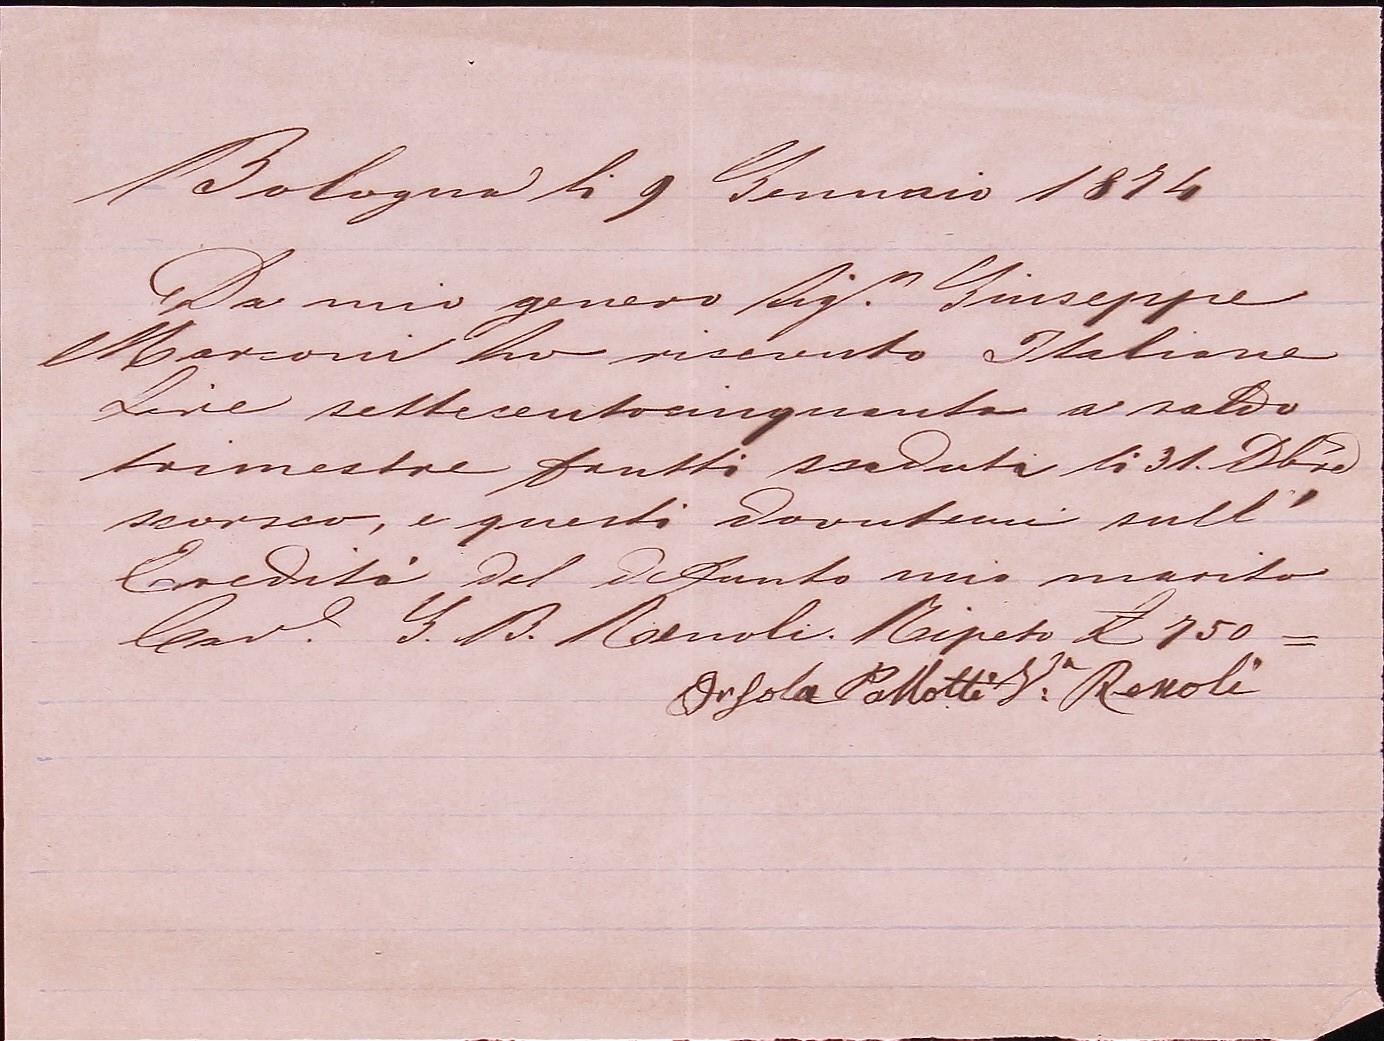 Bologna li 9 Gennaio 1874
Da mio genero Sig.r Giuseppe
Marconi ho ricevuto Italiane
Lire settecentocinquanta a saldo
trimestre frutti scaduta li 31. Dbre
scorso, e questi dovutemi sull'
Eredità del defunto mio marito
Cav.e G. B. Renoli. Ripeto £ 750 =
Orsola Pallotti V.a Renoli